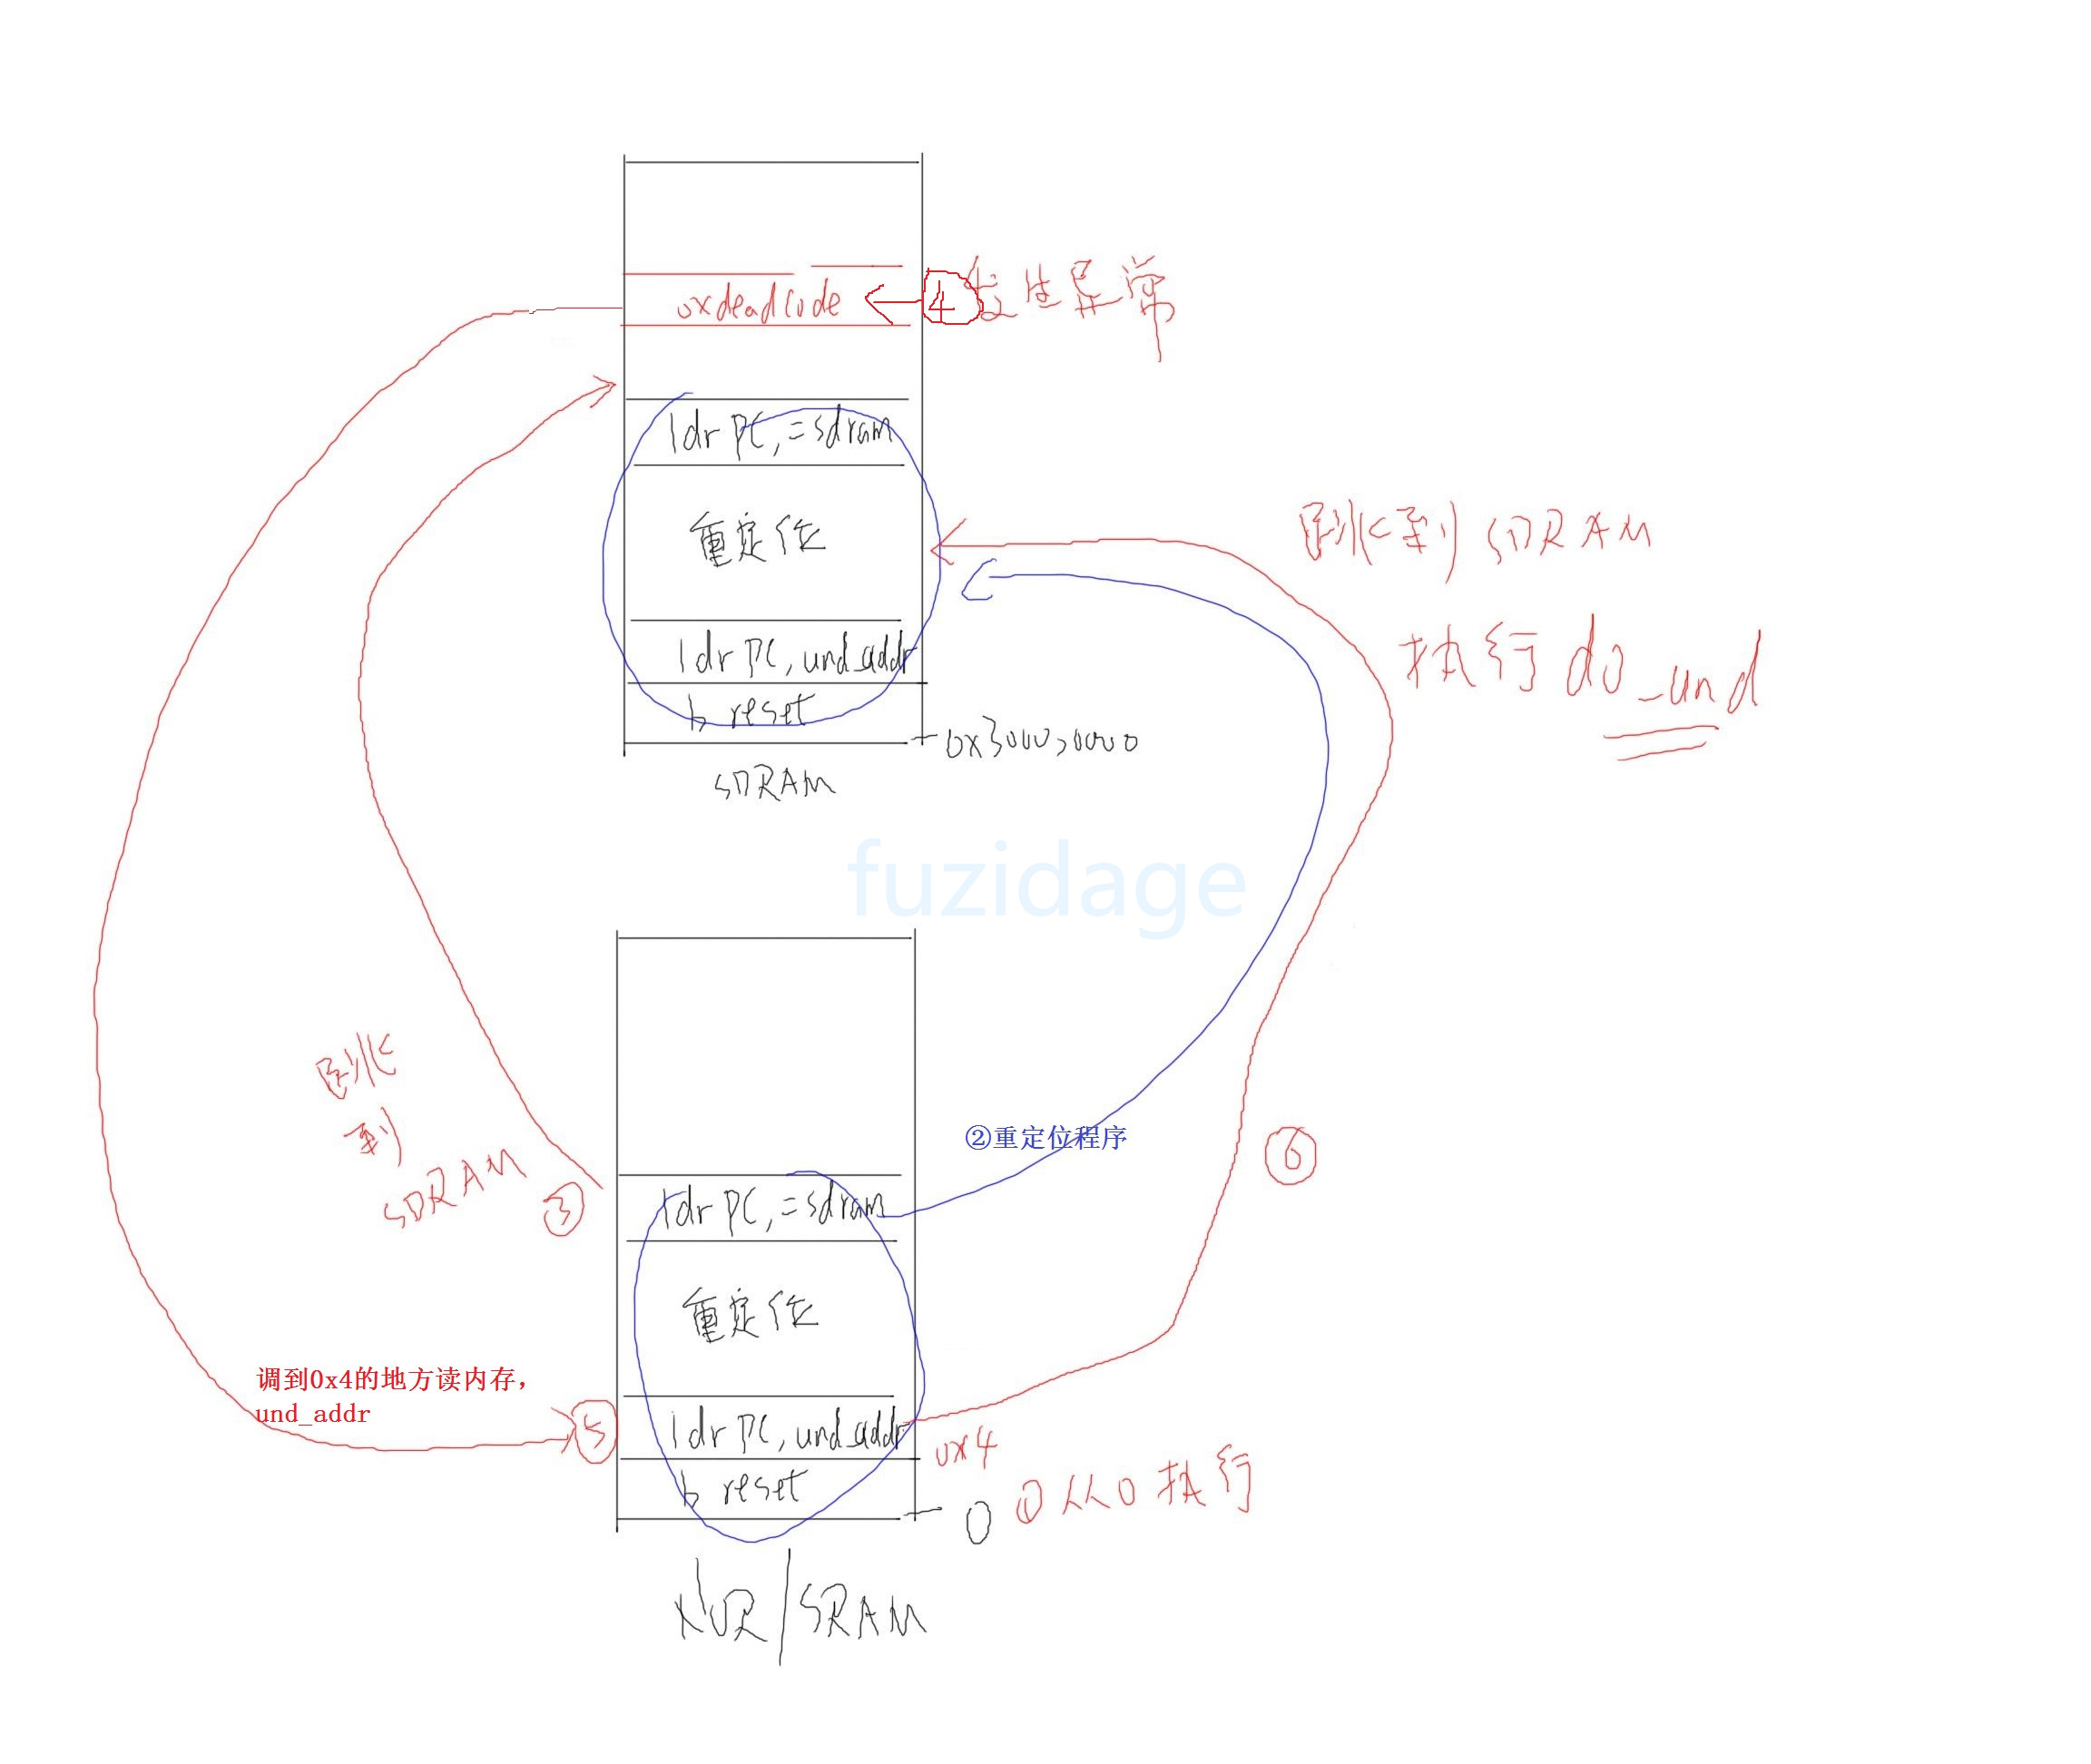 oxdeadcode
④发生异常
ldr PC, =sdram
重定位
ldr PC, und_addr
b reset
0x30000000
SDRAM
跳到 SDRAM
执行 do_und
fuzidage
跳
到
SDRAM
③
②重定位程序
⑥
ldr PC, =sdram
重定位
调到0x4的地方读内存，
und_addr
⑤
ldr PC, und_addr
0x4
b reset
0
①从0执行
NOR/SRAM